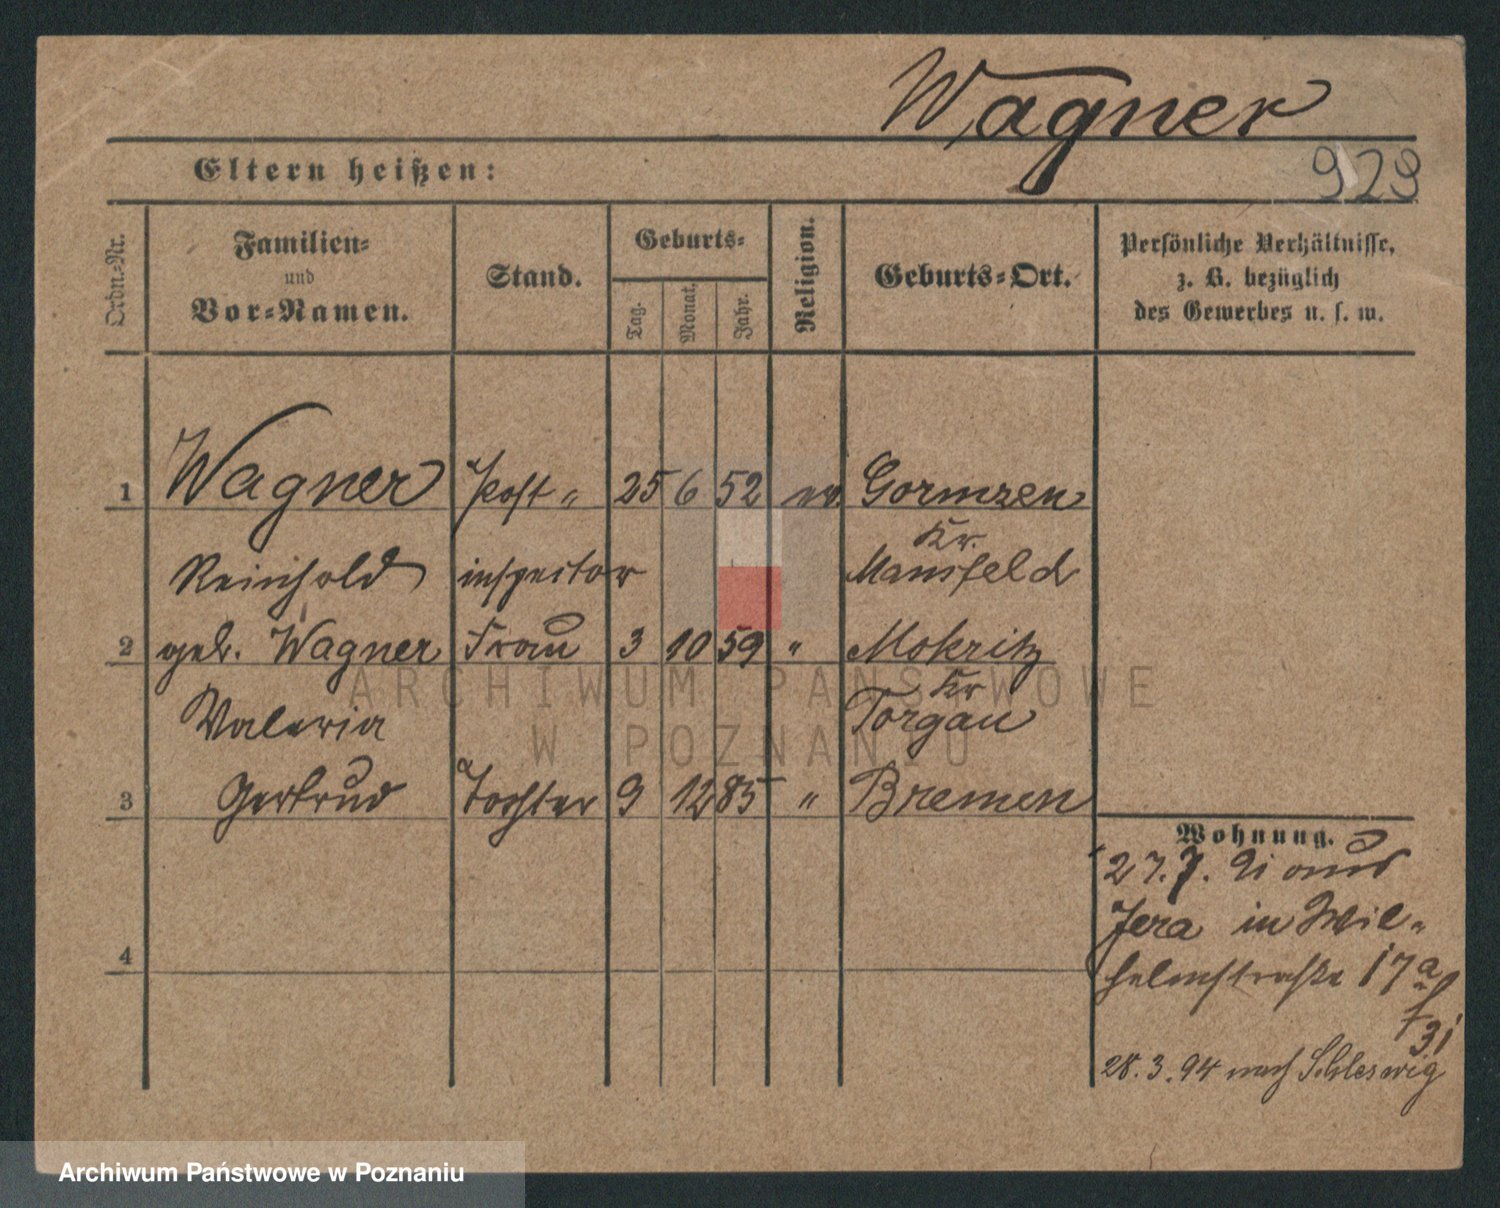 Wagner
Eltern heißen:
929
Ordn.=Nr.
Familien=
und
Vor=Namen.
Stand.
Geburts=
Tag.
Monat.
Jahr.
Religion.
Geburts=Ort.
Persönliche Verhältnisse,
z. B. bezüglich
des Gewerbes u. s. w.
1 Wagner Post „ 25 6 52 ev. Gormzen
Kr.
Reinhold inspector Mansfeld
2 geb. Wagner Frau 3 10 59 " Mokritz
Kr
Valeria Torgau
3 Gertrud Tochter 9 12 85 " Bremen
4
Wohnung.
27. 7. 91 aus
Jera in Wil-
helmstraße 17a
31
28. 3. 94 nach Schleswig
ARCHIWUM PAŃSTWOWE
W POZNANIU
Archiwum Państwowe w Poznaniu